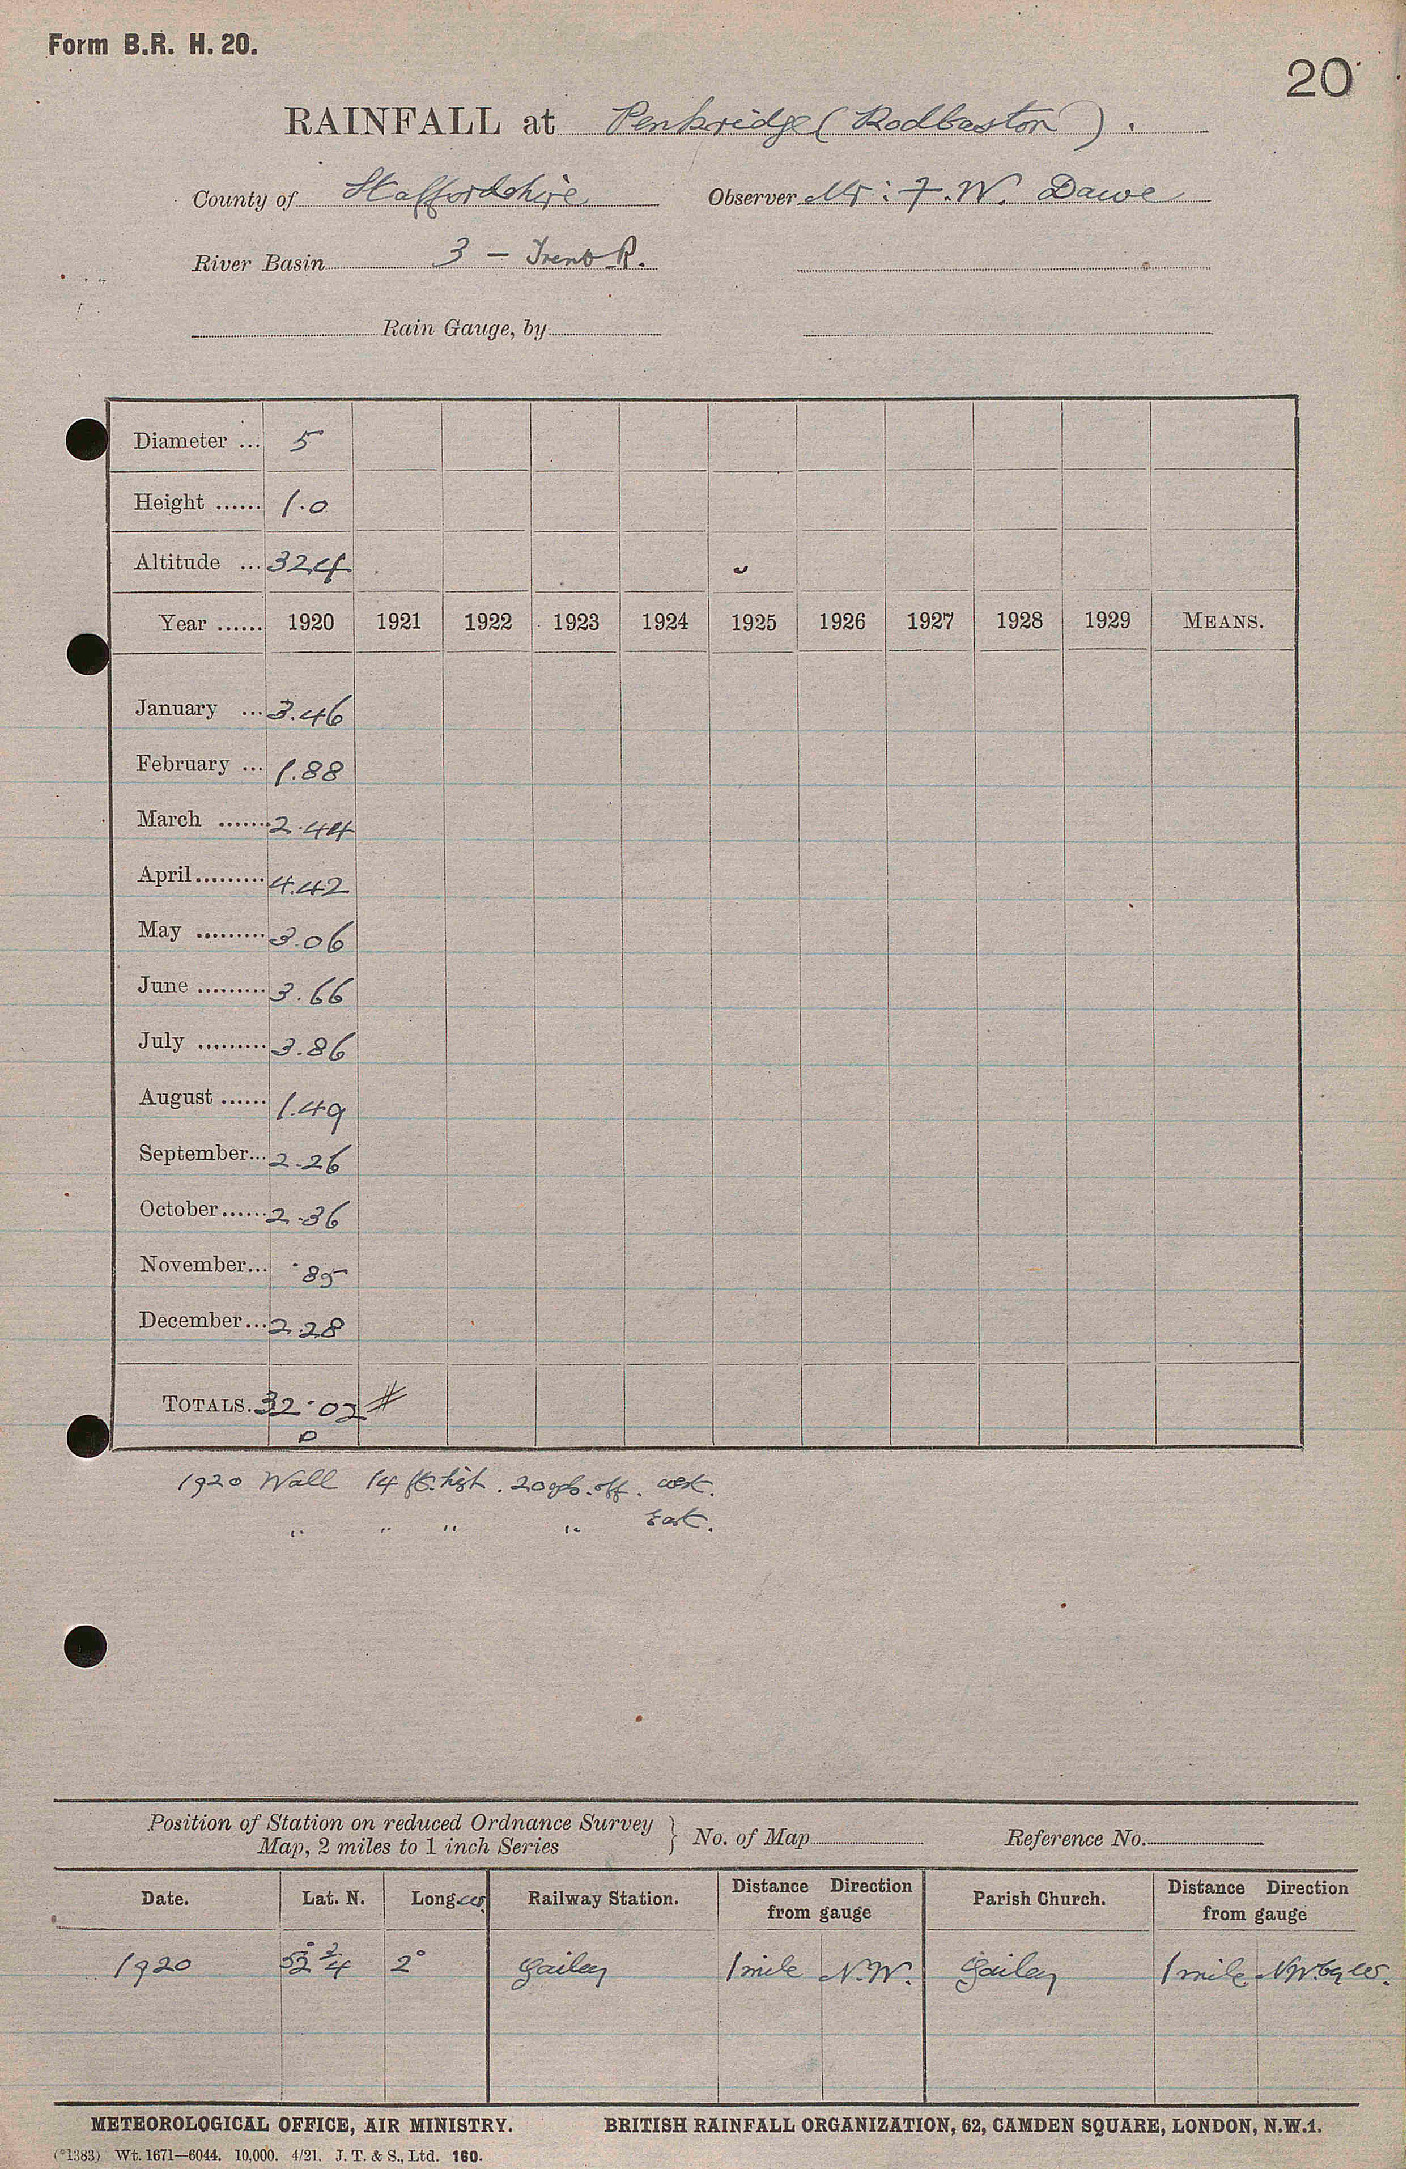 Form B.R. H. 20.
20
RAINFALL at Penkridge (Rodbaston).
County of Staffordshire Observer Mr: F. W. Dawe
River Basin 3 - Trent R.
Rain Gauge, by
Diameter ... 5
Height ...... 1.0
Altitude ... 324
Year ...... 1920 1921 1922 1923 1924 1925 1926 1927 1928 1929 MEANS.
January ... 3.46
February ... 1.88
March ....... 2.44
April ......... 4.42
May ......... 3.06
June ......... 3.66
July ......... 3.86
August ...... 1.49
September... 2.26
October ...... 2.36
November... .85
December... 2.28
TOTALS. 32.02 #
D
1920 Wall 14 ft. high. 20 yds. off. west.
" " " " East.
Position of Station on reduced Ordnance Survey
Map, 2 miles to 1 inch Series } No. of Map Reference No.
Date. Lat. N. Long w. Railway Station. Distance Direction from gauge Parish Church. Distance Direction from gauge
1920 52° 3/4 2° Gailey 1 mile N.W. Gailey 1 mile N.W. by W.
METEOROLOGICAL OFFICE, AIR MINISTRY. BRITISH RAINFALL ORGANIZATION, 62, CAMDEN SQUARE, LONDON, N.W.1.
(*1383) Wt. 1671—6044. 10,000. 4/21. J. T. & S., Ltd. 160.